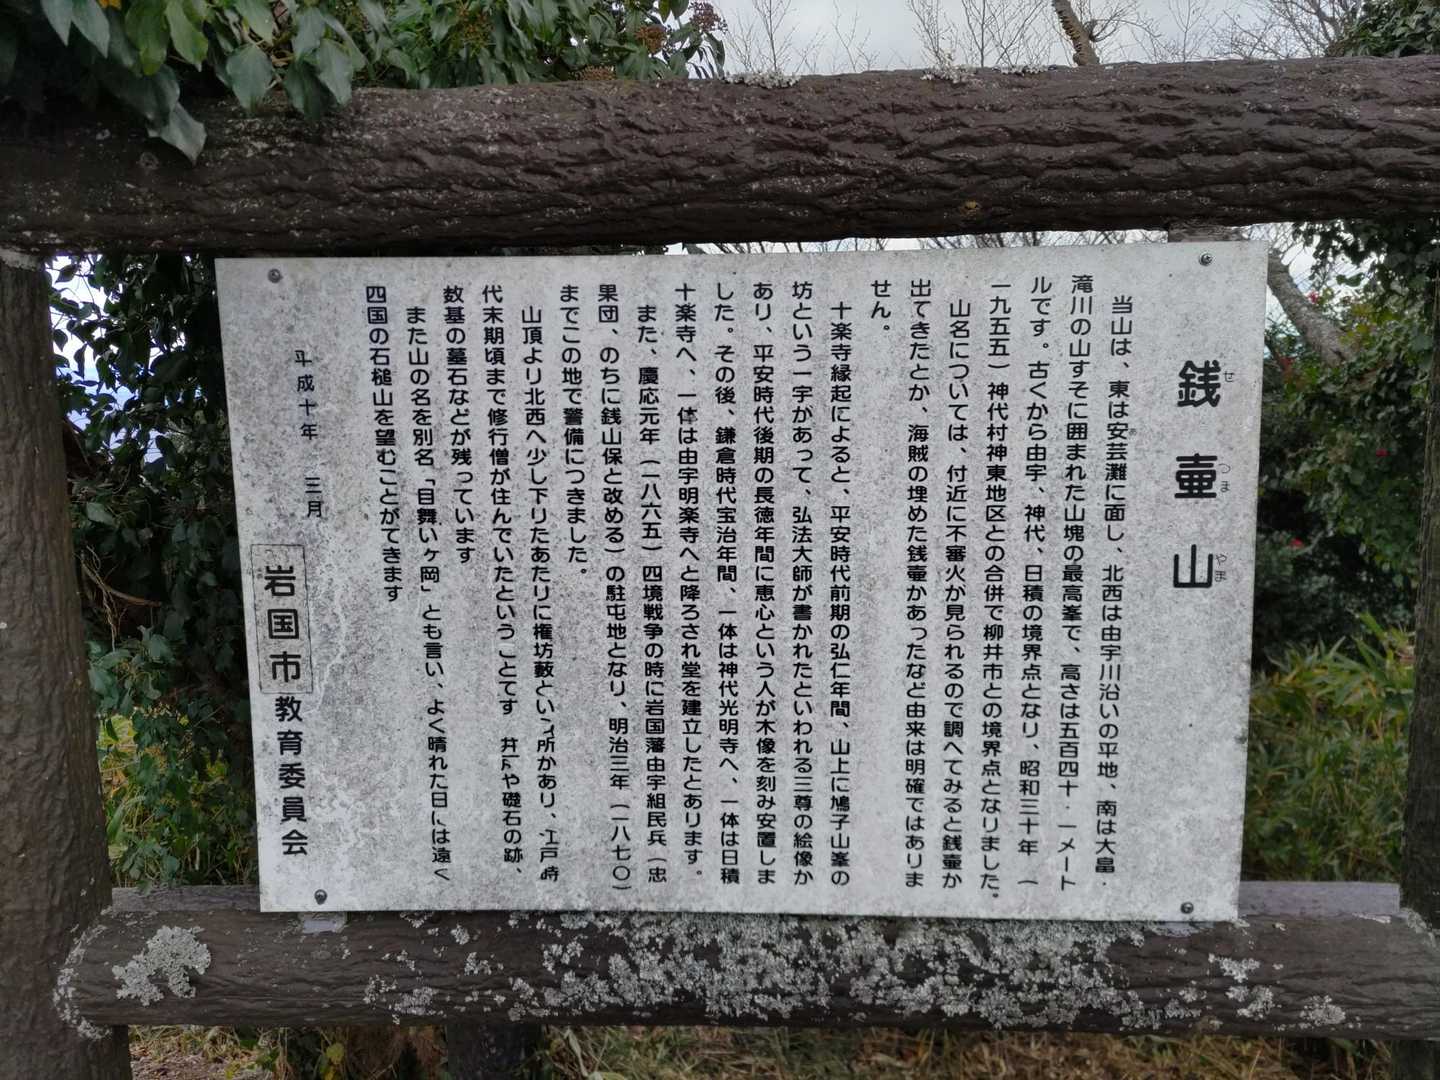 銭壷山
せ
つぼ
やま
当山は、東は安芸灘に面し、北西は由宇川沿いの平地、南は大畠・
滝川の山すそに囲まれた山塊の最高峯で、高さは五百四十・一メート
ルです。古くから由宇、神代、日積の境界点となり、昭和三十年（
一九五五）神代村神東地区との合併で柳井市との境界点となりました。
山名については、付近に不審火が見られるので調べてみると銭壷が
出てきたとか、海賊の埋めた銭壷があったなど由来は明確ではありま
せん。
十楽寺縁起によると、平安時代前期の弘仁年間、山上に鳩子山峯の
坊という一宇があって、弘法大師が書かれたといわれる三尊の絵像が
あり、平安時代後期の長徳年間に恵心という人が木像を刻み安置しま
した。その後、鎌倉時代宝治年間、一体は神代光明寺へ、一体は日積
十楽寺へ、一体は由宇明楽寺へと降ろされ堂を建立したとあります。
また、慶応元年（一八六五）四境戦争の時に岩国藩由宇組民兵（忠
果団、のちに銭山保と改める）の駐屯地となり、明治三年（一八七〇）
までこの地で警備につきました。
山頂より北西へ少し下りたあたりに権坊藪という所があり、江戸時
代末期頃まで修行僧が住んでいたということです　井戸や礎石の跡、
数基の墓石などが残っています
また山の名を別名「目舞いヶ岡」とも言い、よく晴れた日には遠く
四国の石槌山を望むことができます
平成十年　三月
岩国市教育委員会